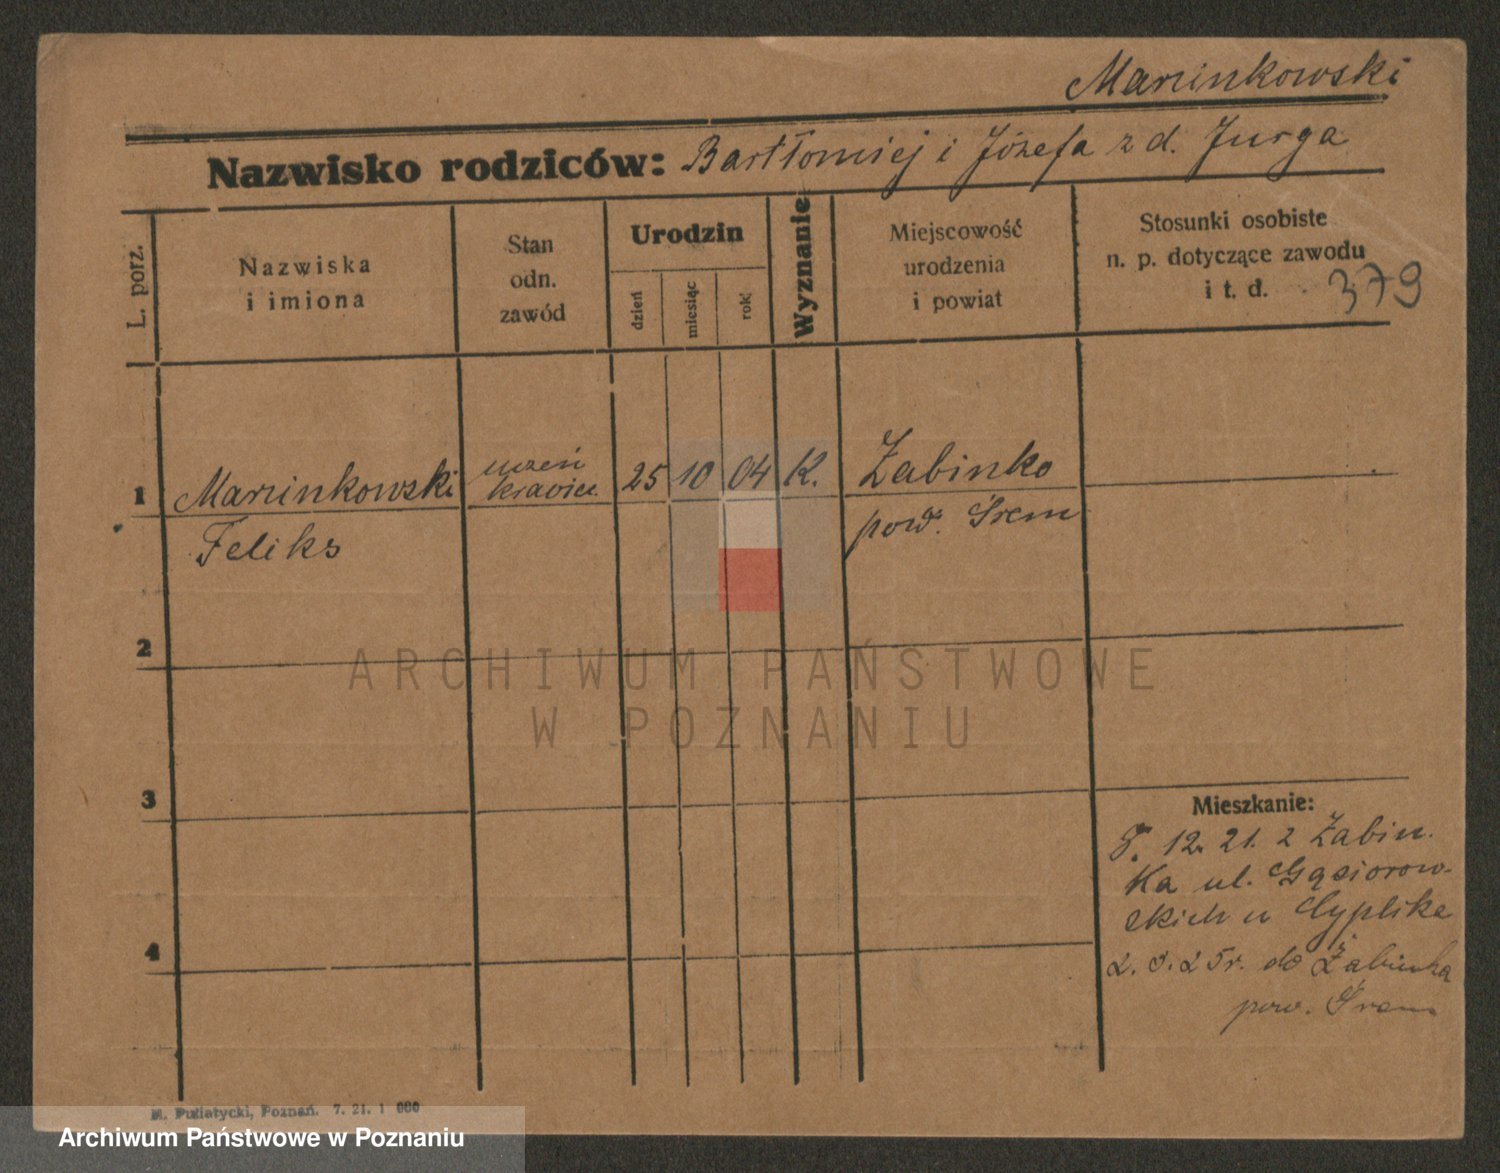 Marcinkowski
Nazwisko rodziców: Bartłomiej i Józefa z d. Jurga
L. porz.
Nazwiska
i imiona
Stan
odn.
zawód
Urodzin
dzień
miesiąc
rok
Wyznanie
Miejscowość
urodzenia
i powiat
Stosunki osobiste
n. p. dotyczące zawodu
i t. d.
379
1
Marcinkowski
Feliks
uczeń
krawiec.
25
10
04
K.
Żabinko
pow. Śrem
2
3
4
Mieszkanie:
12. 21. z Żabin.
ka ul. Gąsiorow-
skich u Cyplika
2. 25r. do Żabinka
pow. Śrem
M. Putiatycki, Poznań. 7. 21. 1 000
ARCHIWUM PAŃSTWOWE
W POZNANIU
Archiwum Państwowe w Poznaniu